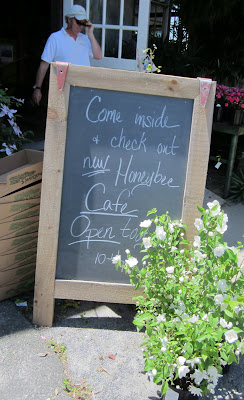 Come inside
+ check out
new Honeybee
Cafe
Open
10-